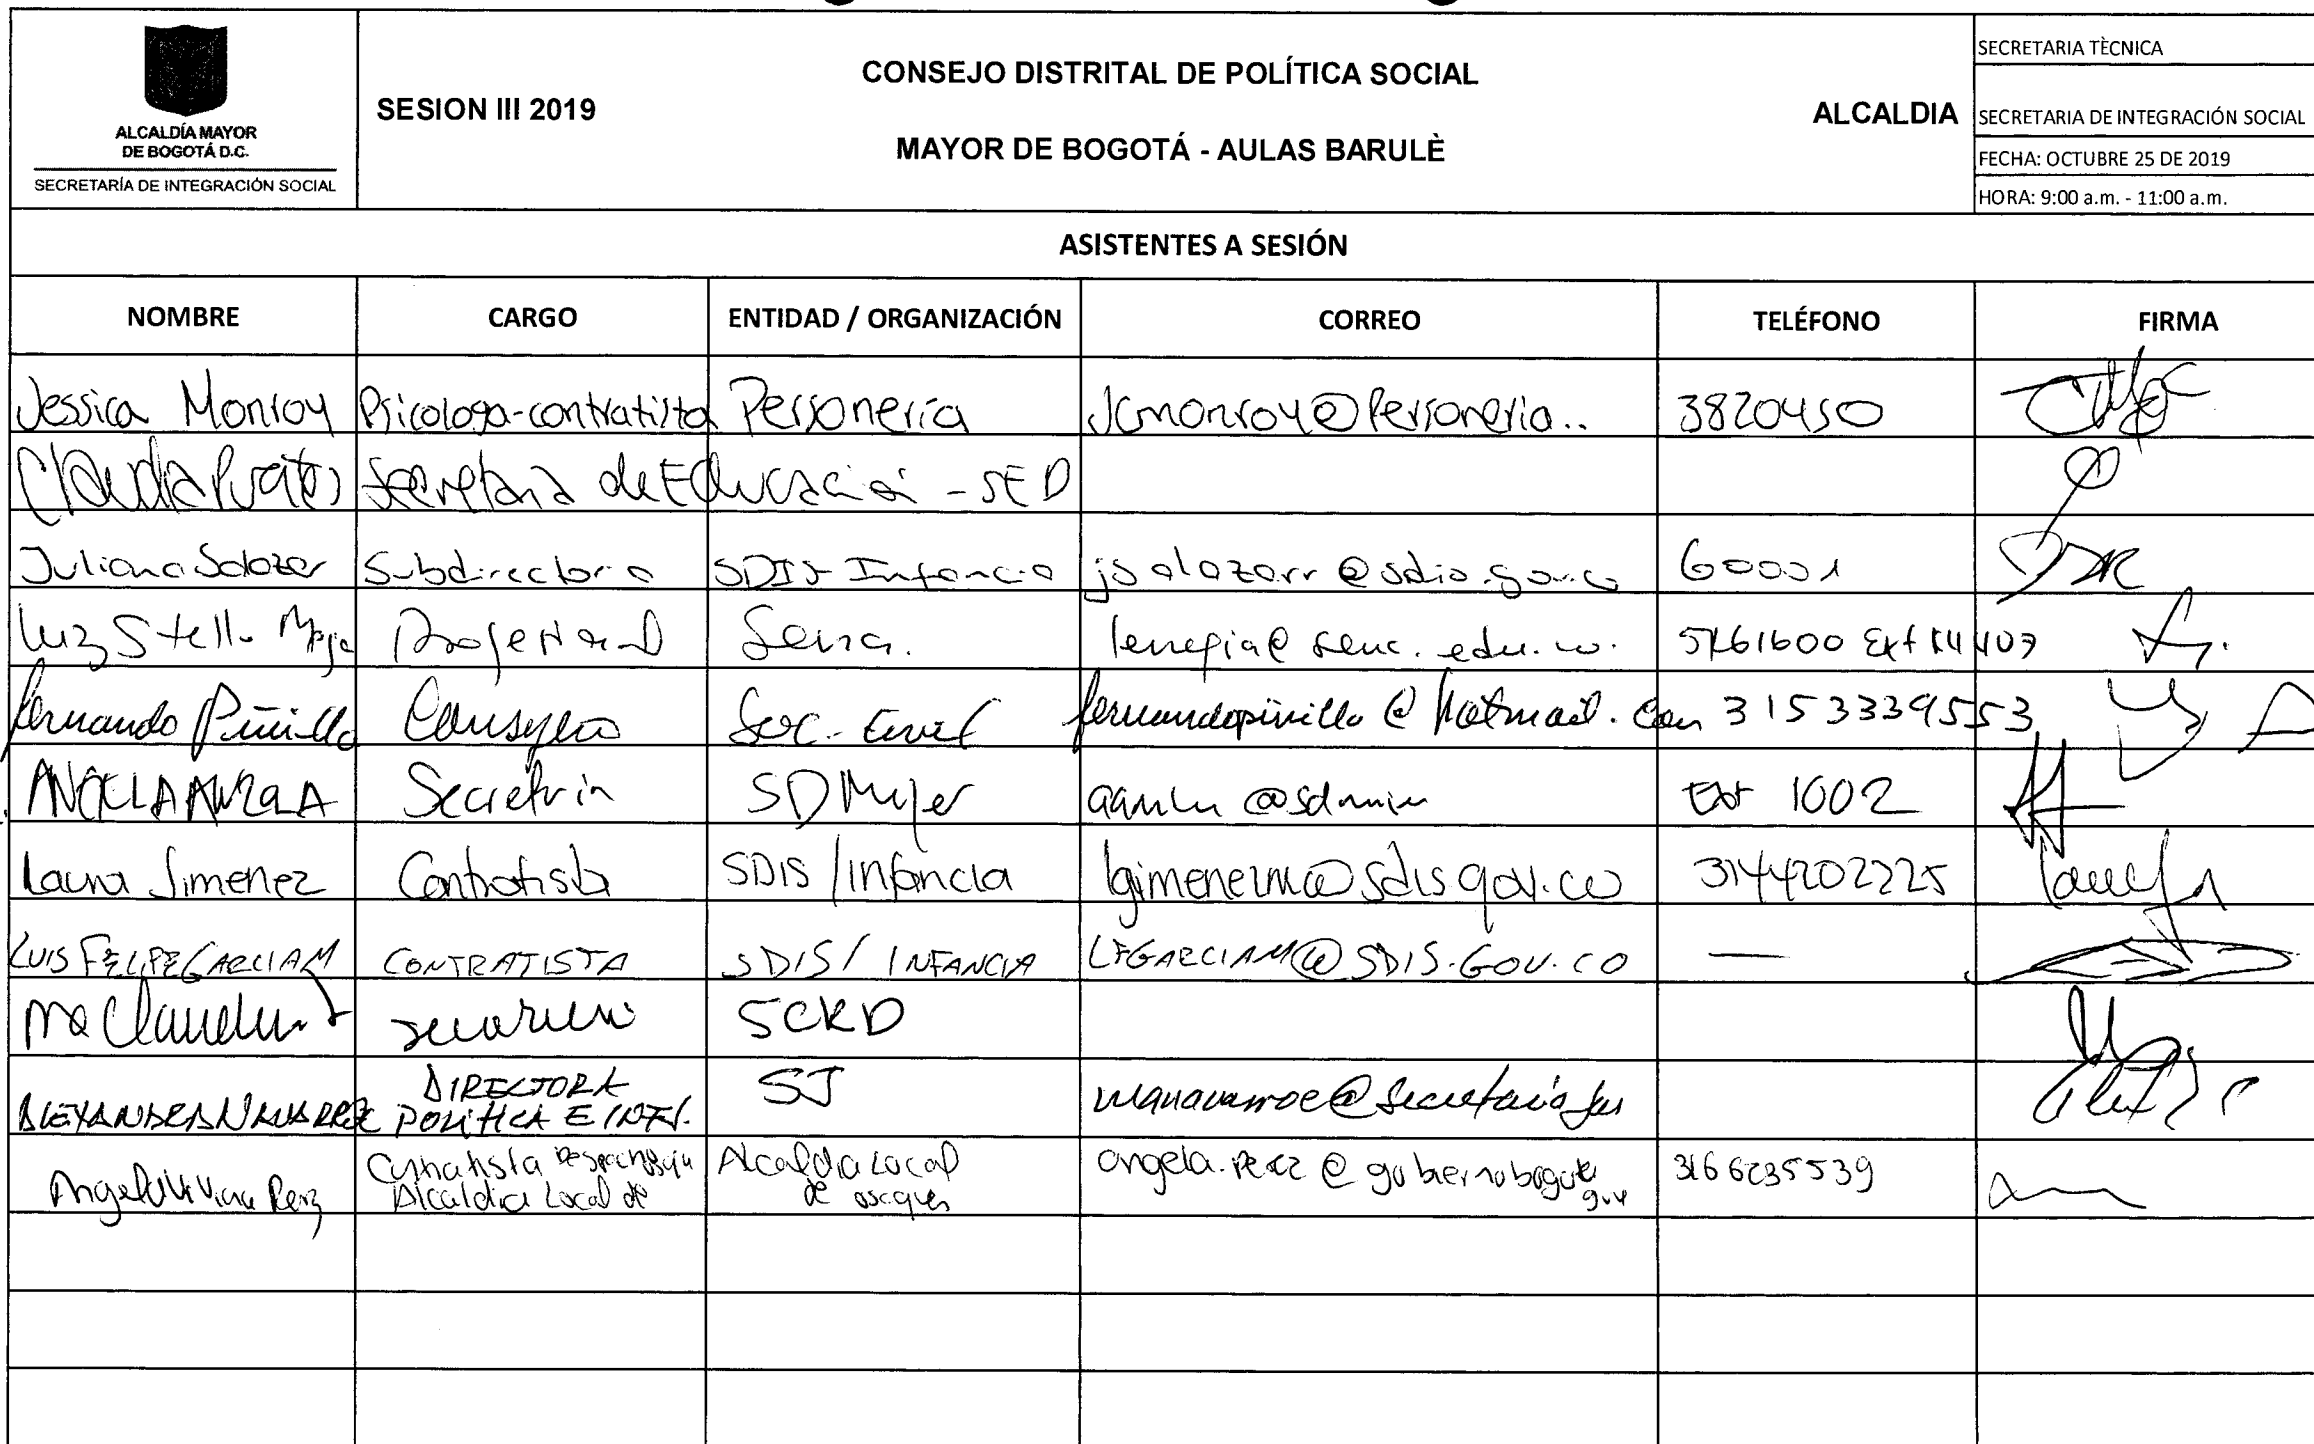 ALCALDÍA MAYOR
DE BOGOTÁ D.C.
SECRETARÍA DE INTEGRACIÓN SOCIAL
SESION III 2019
CONSEJO DISTRITAL DE POLÍTICA SOCIAL
ALCALDIA
MAYOR DE BOGOTÁ - AULAS BARULÈ
SECRETARIA TÈCNICA
SECRETARIA DE INTEGRACIÓN SOCIAL
FECHA: OCTUBRE 25 DE 2019
HORA: 9:00 a.m. - 11:00 a.m.
ASISTENTES A SESIÓN
NOMBRE CARGO ENTIDAD / ORGANIZACIÓN CORREO TELÉFONO FIRMA
Jessica Monroy Psicologa-contratista Personería Jcmonroy@Personeria.. 3820450
Claudia Secretaria de Educación - SED
Juliana Salazar Subdirectora SDIS-Infancia jsalazarr@sdis.gov.co 60001
Luz Stella Profesional Sena.
Fernando Pinilla Consejero Soc. Civil fernandopinilla@hotmail.com 3153339553
ANGELA ANZOLA Secretaria SDMujer Ext 1002
Laura Jimenez Contratista SDIS/Infancia lgimenezm@sdis.gov.co 3144202225
LUIS FELIPE GARCIA M CONTRATISTA SDIS/ INFANCIA LFGARCIAM@SDIS.GOV.CO —
Ma Claudia SCRD
ALEXANDRA NAVARRO DIRECTORA
POLÍTICA E INFI. SJ
Angela Viviana Perez Contratista
Alcaldia Local de Alcaldia Local
de angela.perez@gobiernobogota
gov 3166235539